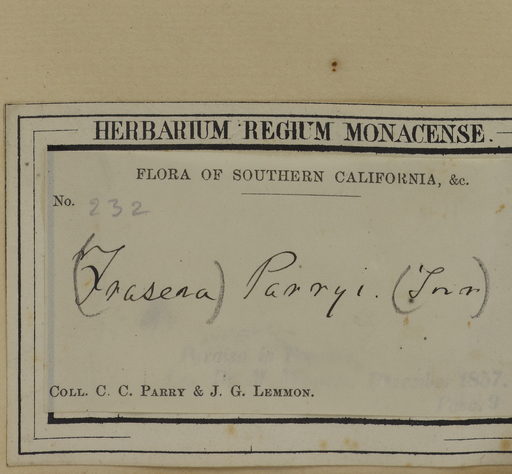 HERBARIUM REGIUM MONACENSE.
FLORA OF SOUTHERN CALIFORNIA, &c.
No. 232
(Frasera) Parryi. (Torr)
COLL. C. C. PARRY & J. G. LEMMON.